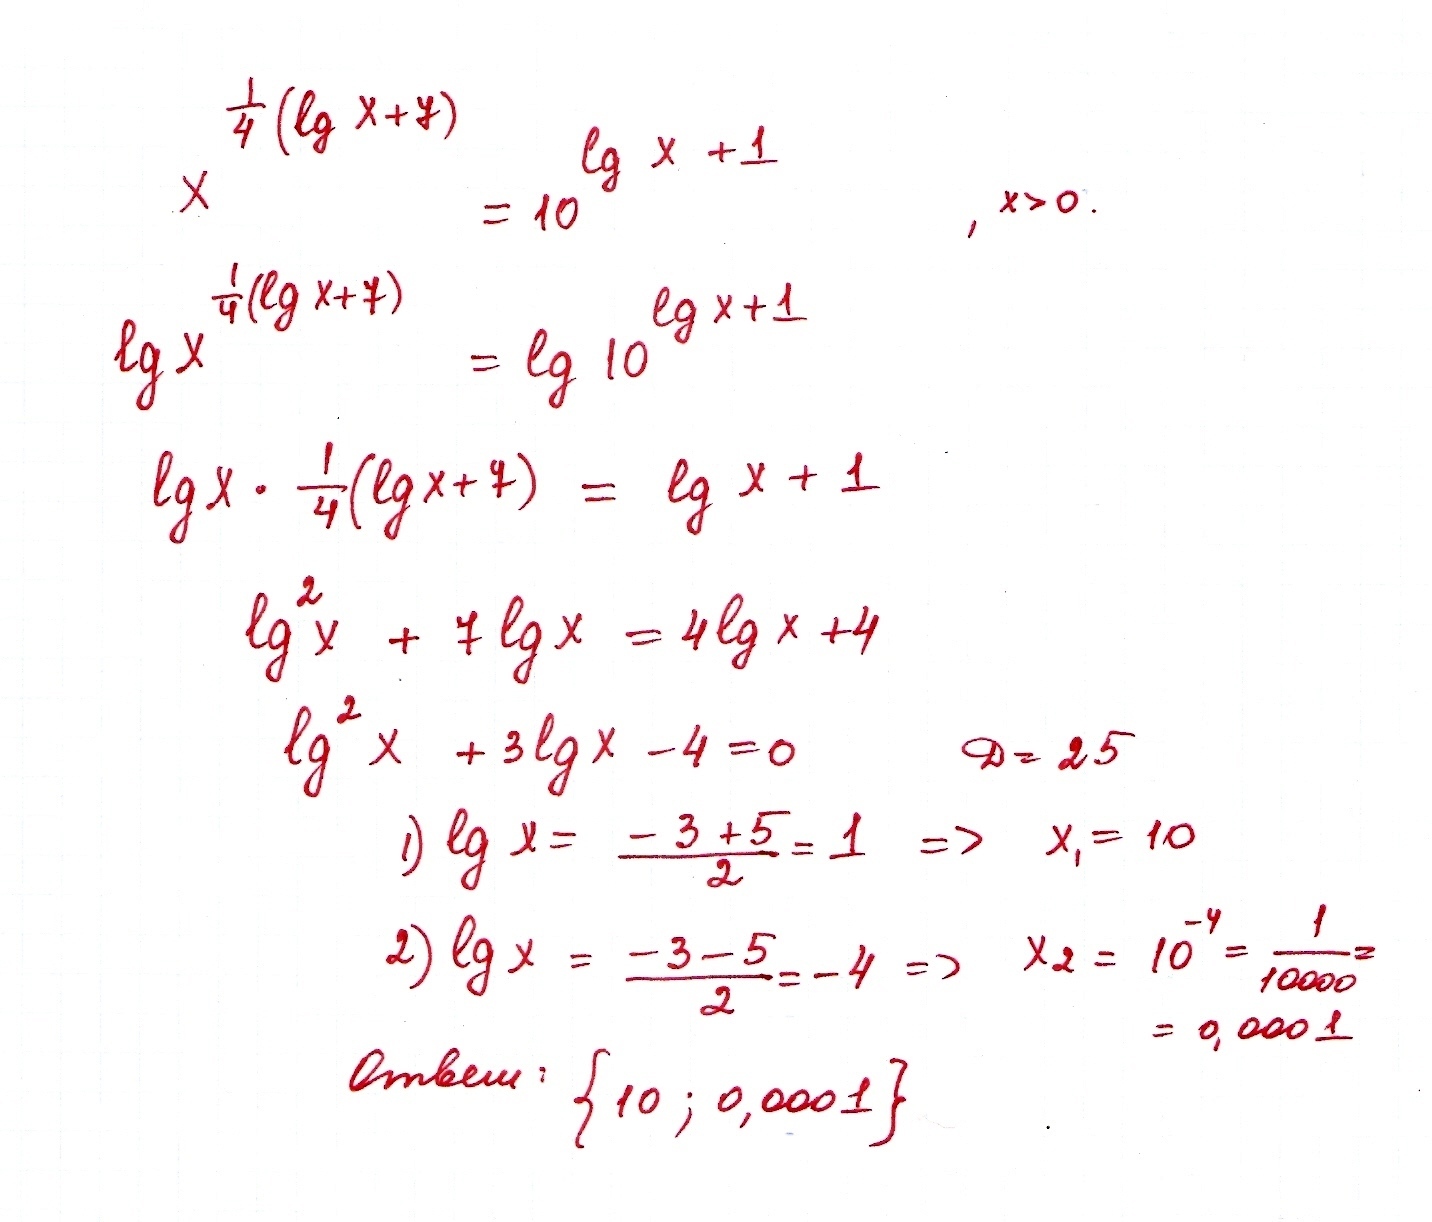 x^{\frac{1}{4}(lg x+7)} = 10^{lg x+1} , x>0.
lg x^{\frac{1}{4}(lg x+7)} = lg 10^{lg x+1}
lg x · \frac{1}{4}(lg x+7) = lg x + 1
lg^2 x + 7 lg x = 4 lg x + 4
lg^2 x + 3 lg x - 4 = 0 D = 25
1) lg x = \frac{-3+5}{2} = 1 => x_1 = 10
2) lg x = \frac{-3-5}{2} = -4 => x_2 = 10^{-4} = \frac{1}{10000} =
= 0,0001
Ответ: {10 ; 0,0001}